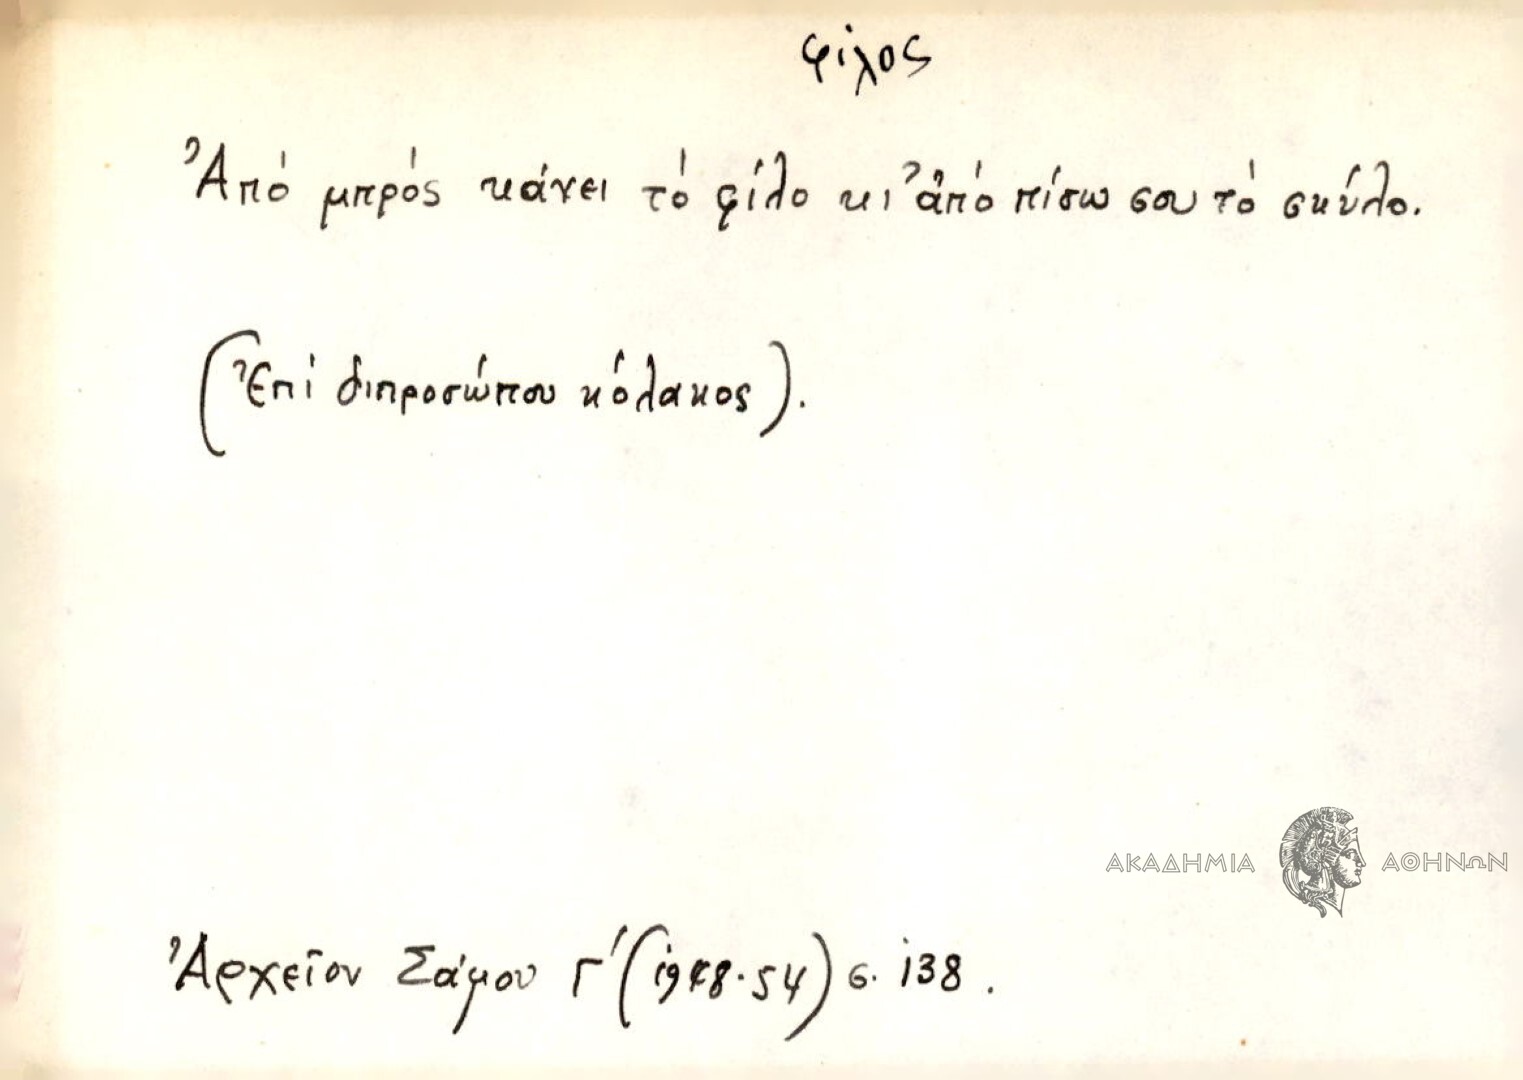 φίλος
Ἀπό μπρός κάνει τό φίλο κι ἀπό πίσω σου τό σκύλο.
(Ἐπί διπροσώπου κόλακος).
ΑΚΑΔΗΜΙΑ ΑΘΗΝΩΝ
Ἀρχεῖον Σάμου Γ΄ (1948·54) σ. 138.